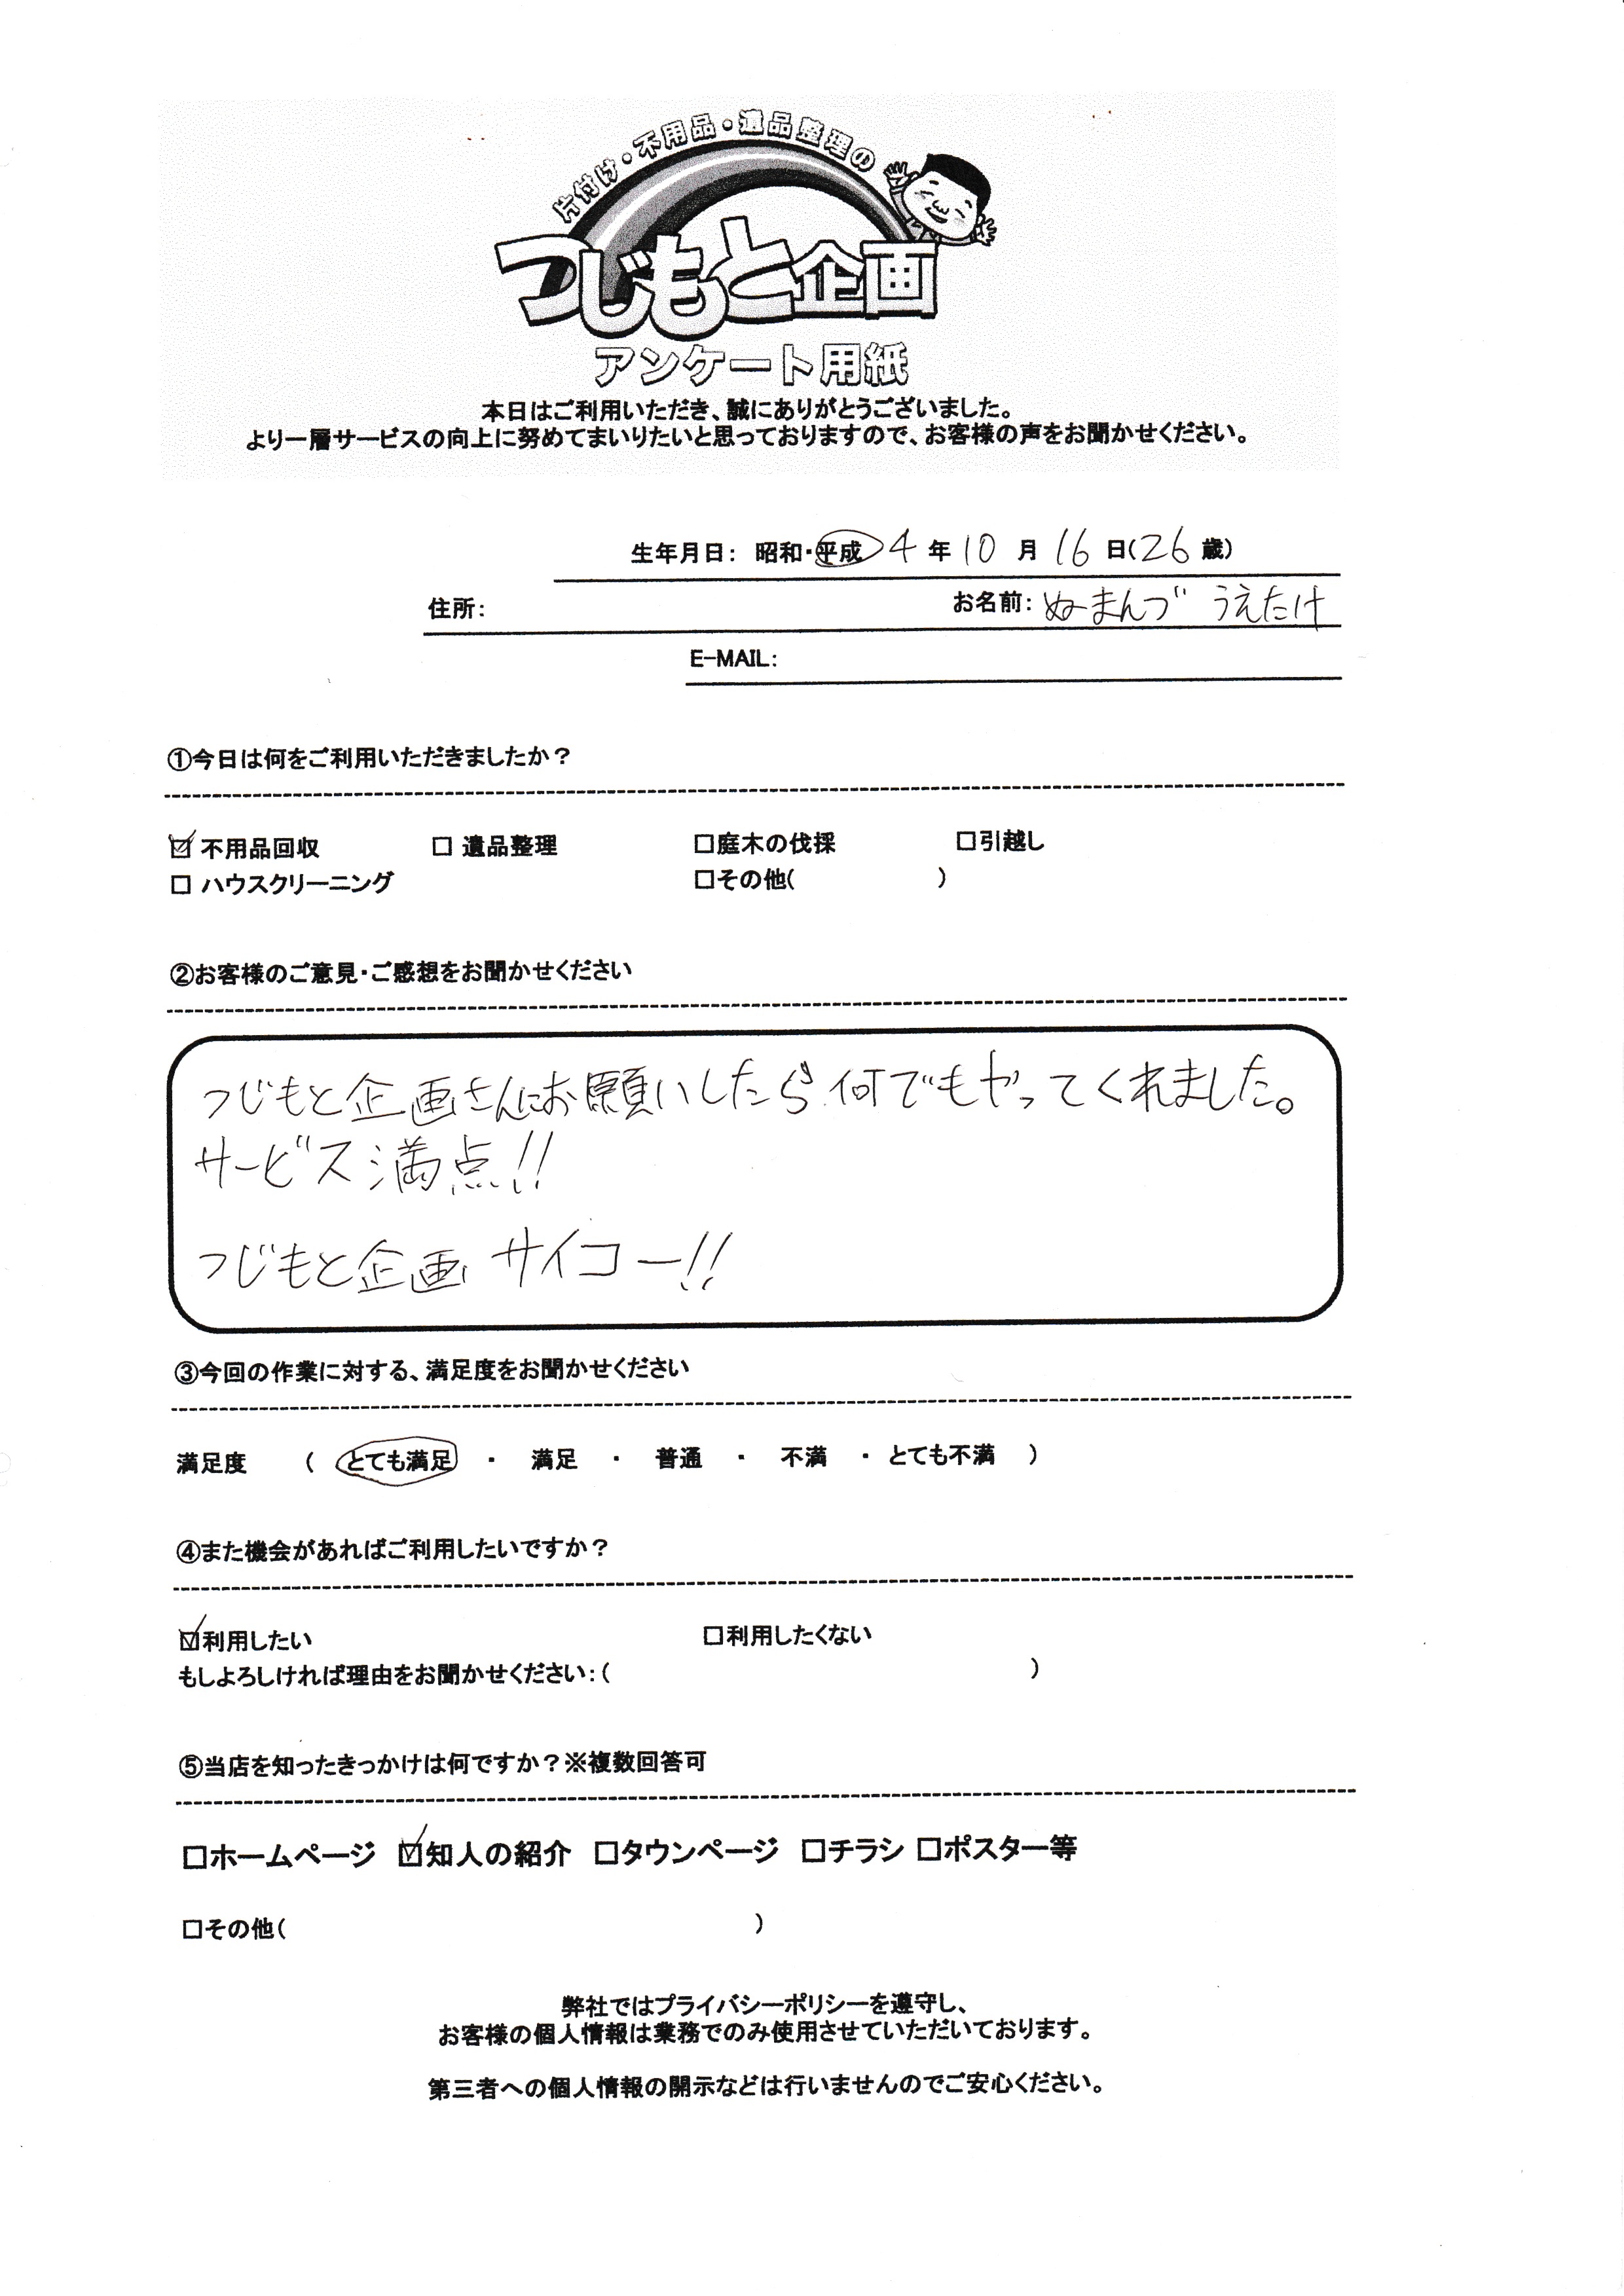 片付け・不用品・遺品整理の
つじもと企画
アンケート用紙
本日はご利用いただき、誠にありがとうございました。
より一層サービスの向上に努めてまいりたいと思っておりますので、お客様の声をお聞かせください。
生年月日： 昭和・平成 4 年 10 月 16 日(26 歳)
住所： お名前： ぬーまんづ うえたけ
E-MAIL：
①今日は何をご利用いただきましたか？
☑ 不用品回収 □ 遺品整理 □庭木の伐採 □引越し
□ ハウスクリーニング □その他( )
②お客様のご意見・ご感想をお聞かせください
つじもと企画さんにお願いしたら何でもやってくれました。
サービス満点!!
つじもと企画 サイコー!!
③今回の作業に対する、満足度をお聞かせください
満足度 ( とても満足 ・ 満足 ・ 普通 ・ 不満 ・ とても不満 )
④また機会があればご利用したいですか？
☑利用したい □利用したくない
もしよろしければ理由をお聞かせください：( )
⑤当店を知ったきっかけは何ですか？※複数回答可
□ホームページ ☑知人の紹介 □タウンページ □チラシ □ポスター等
□その他( )
弊社ではプライバシーポリシーを遵守し、
お客様の個人情報は業務でのみ使用させていただいております。
第三者への個人情報の開示などは行いませんのでご安心ください。